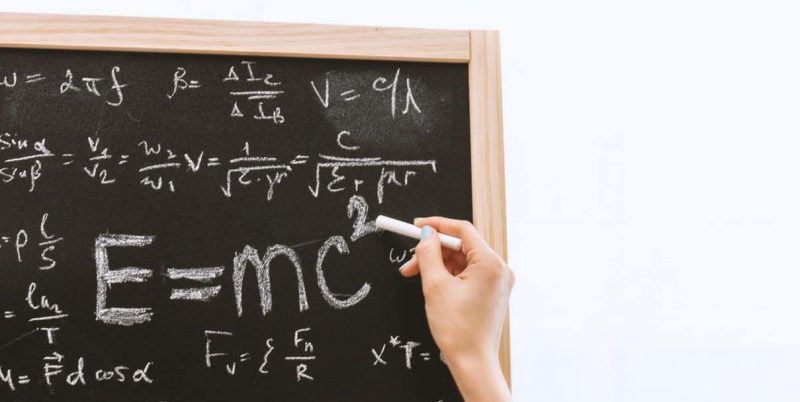 w = 2πf β = ΔI₂ / ΔI_B V = c/λ
sin α / sin β = V₁ / V₂ = w₂ / w₁ V = 1 / √(ε·γr = c / √εr √μr
= ρ l / S
E = mc²
= ln₂ / T
F_v = { F_n / R x* T =
= F⃗ d cos α